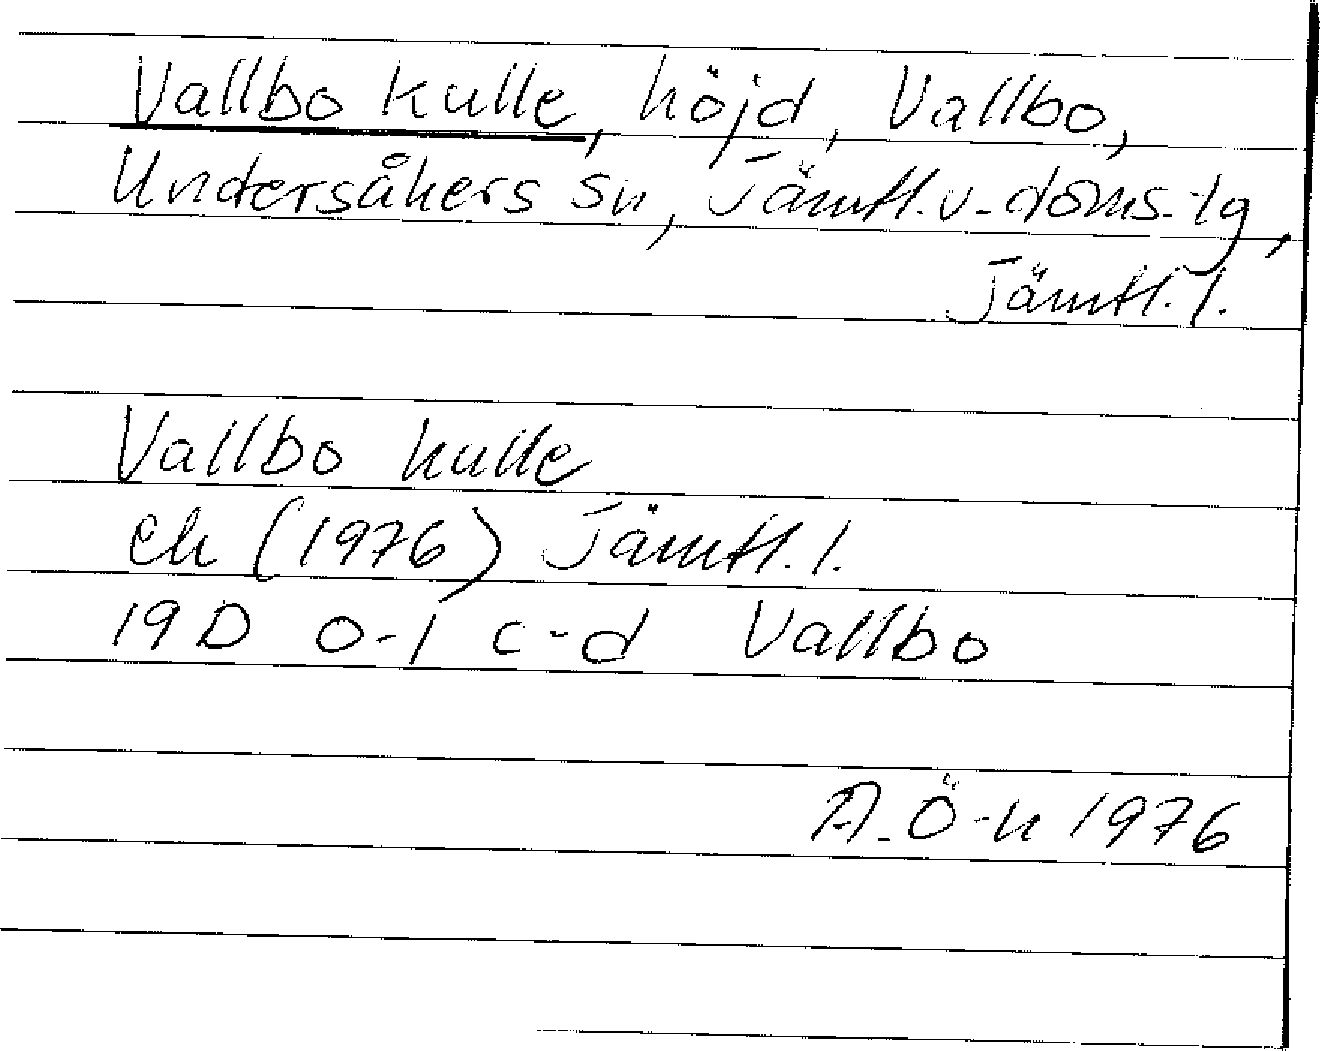 Vallbo kulle, höjd, Vallbo,
Undersåkers sn, Jämtl. v. doms-lg,
Jämtl. l.
Vallbo kulle
ek (1976) Jämtl. l.
19 D 0-1 c-d Vallbo
A. Ö-n 1976